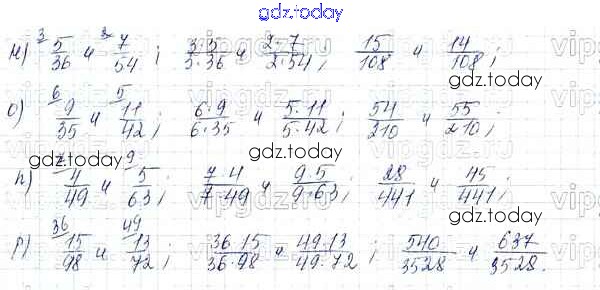 gdz.today
н) ³5/36 и ²7/54; 3·5/3·36 и 2·7/2·54; 15/108 и 14/108;
gdz.today
о) ⁶9/35 и ⁵11/42; 6·9/6·35 и 5·11/5·42; 54/210 и 55/210;
gdz.today
п) 4/49 и ⁹5/63; 7·4/7·49 и 9·5/9·63; 28/441 и 45/441;
gdz.today
р) ³⁶15/98 и ⁴⁹13/72; 36·15/36·98 и 49·13/49·72; 540/3528 и 637/3528.
gdz.today